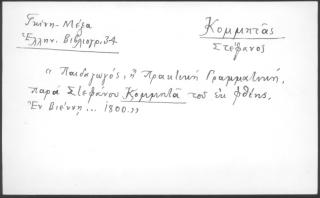 Γκίνη-Μέξα
Ἑλλην. Βιβλιογρ. 34
Κομμητᾶς
Στέφανος
"Παιδαγωγός, ἢ Πρακτικὴ Γραμματική,
παρὰ Στεφάνου Κομμητᾶ τοῦ ἐκ Φθίης.
Ἐν Βιέννῃ... 1800."